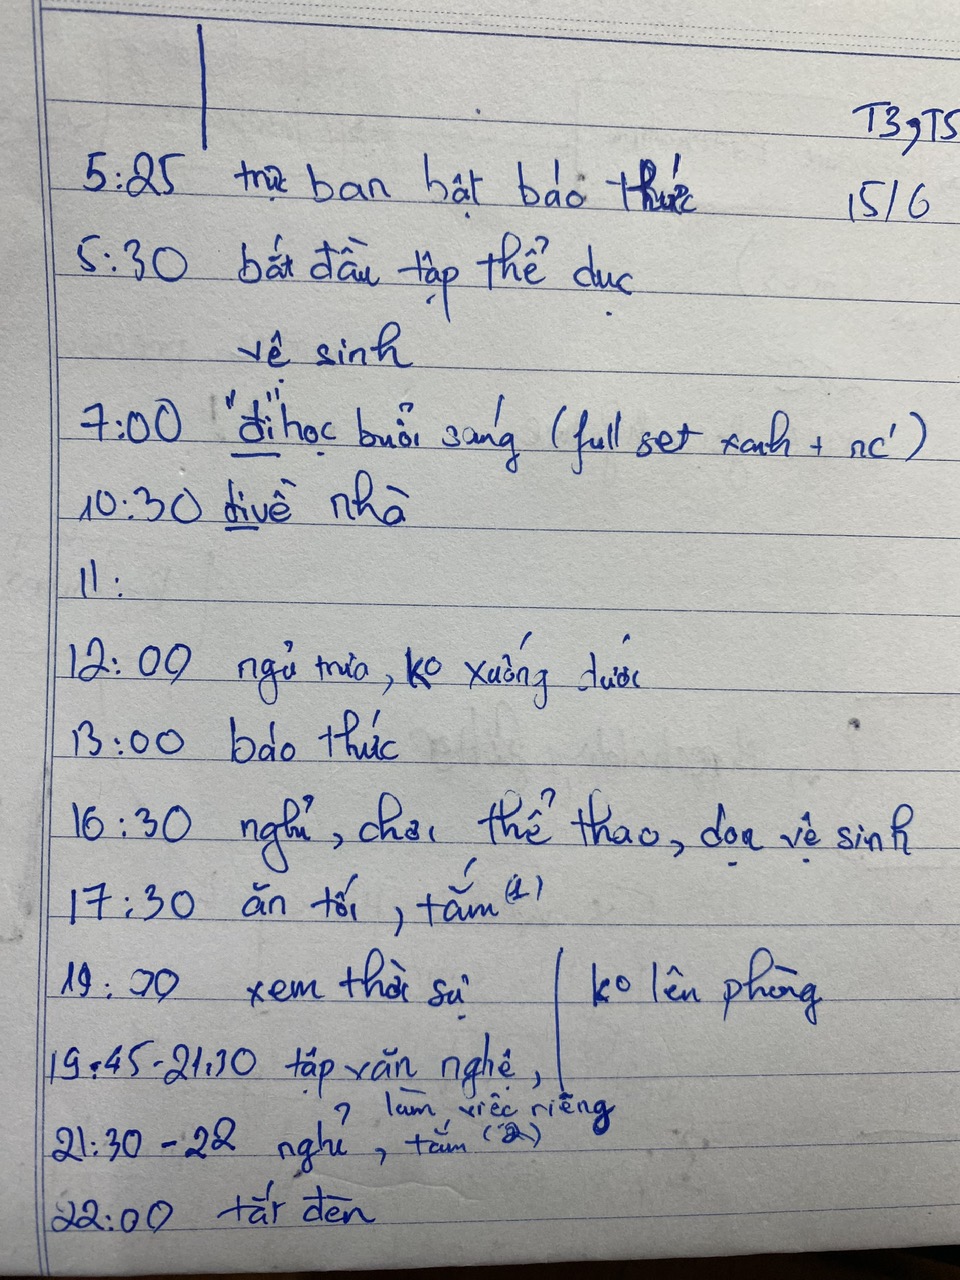 T3, T5
5:25 trực ban bật báo thức 15/6
5:30 bắt đầu tập thể dục
vệ sinh
7:00 "đi" học buổi sáng (full set xanh + nc')
10:30 đi về nhà
11:
12:00 ngủ trưa, ko xuống dưới
13:00 báo thức
16:30 nghỉ, chơi thể thao, dọn vệ sinh
17:30 ăn tối, tắm (1)
19:00 xem thời sự | ko lên phòng
19:45-21:30 tập văn nghệ,
làm việc riêng
21:30 - 22 nghỉ, tắm (2)
22:00 tắt đèn